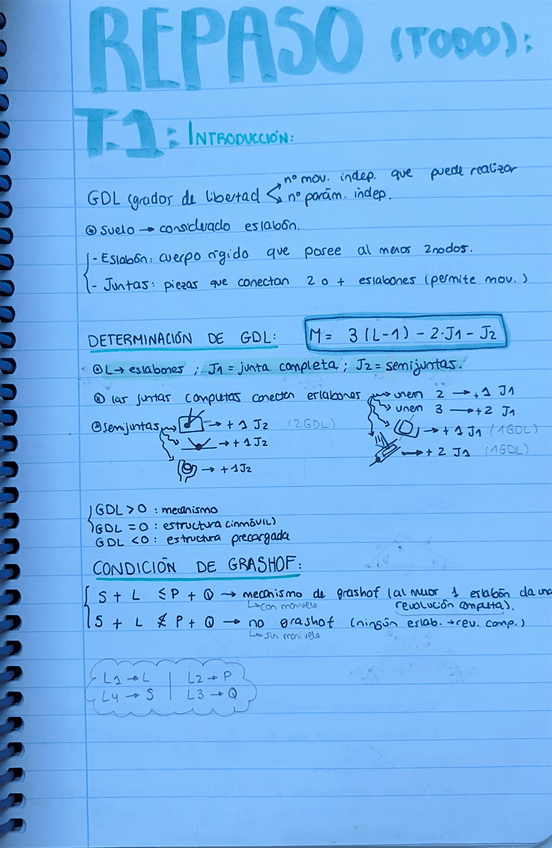 REPASO (TODO):
T.1: INTRODUCCIÓN:
nº mov. indep. que puede realizar
GDL (grados de libertad
nº parám. indep.
Suelo → considerado eslabón.
- Eslabón: cuerpo rígido que posee al menos 2 nodos.
- Juntas: piezas que conectan 2 o + eslabones (permite mov.)
DETERMINACIÓN DE GDL: M = 3(L-1) - 2·J1 - J2
L → eslabones ; J1 = junta completa ; J2 = semijuntas.
las juntas completas conectan eslabones → unen 2 → +1 J1
unen 3 → +2 J1
semijuntas → +1 J2 (2GDL) → +1 J1 (1GDL)
→ +1 J2 → +2 J1 (1GDL)
→ +1 J2
GDL > 0 : mecanismo
GDL = 0 : estructura (inmóvil)
GDL < 0 : estructura precargada
CONDICIÓN DE GRASHOF:
S + L ≤ P + Q → mecanismo de grashof (al menor 1 eslabón da una
↳ con manivela revolución completa).
S + L ≰ P + Q → no grashof (ningún eslab. → rev. comp.)
↳ sin manivela
L1 → L | L2 → P
L4 → S | L3 → Q